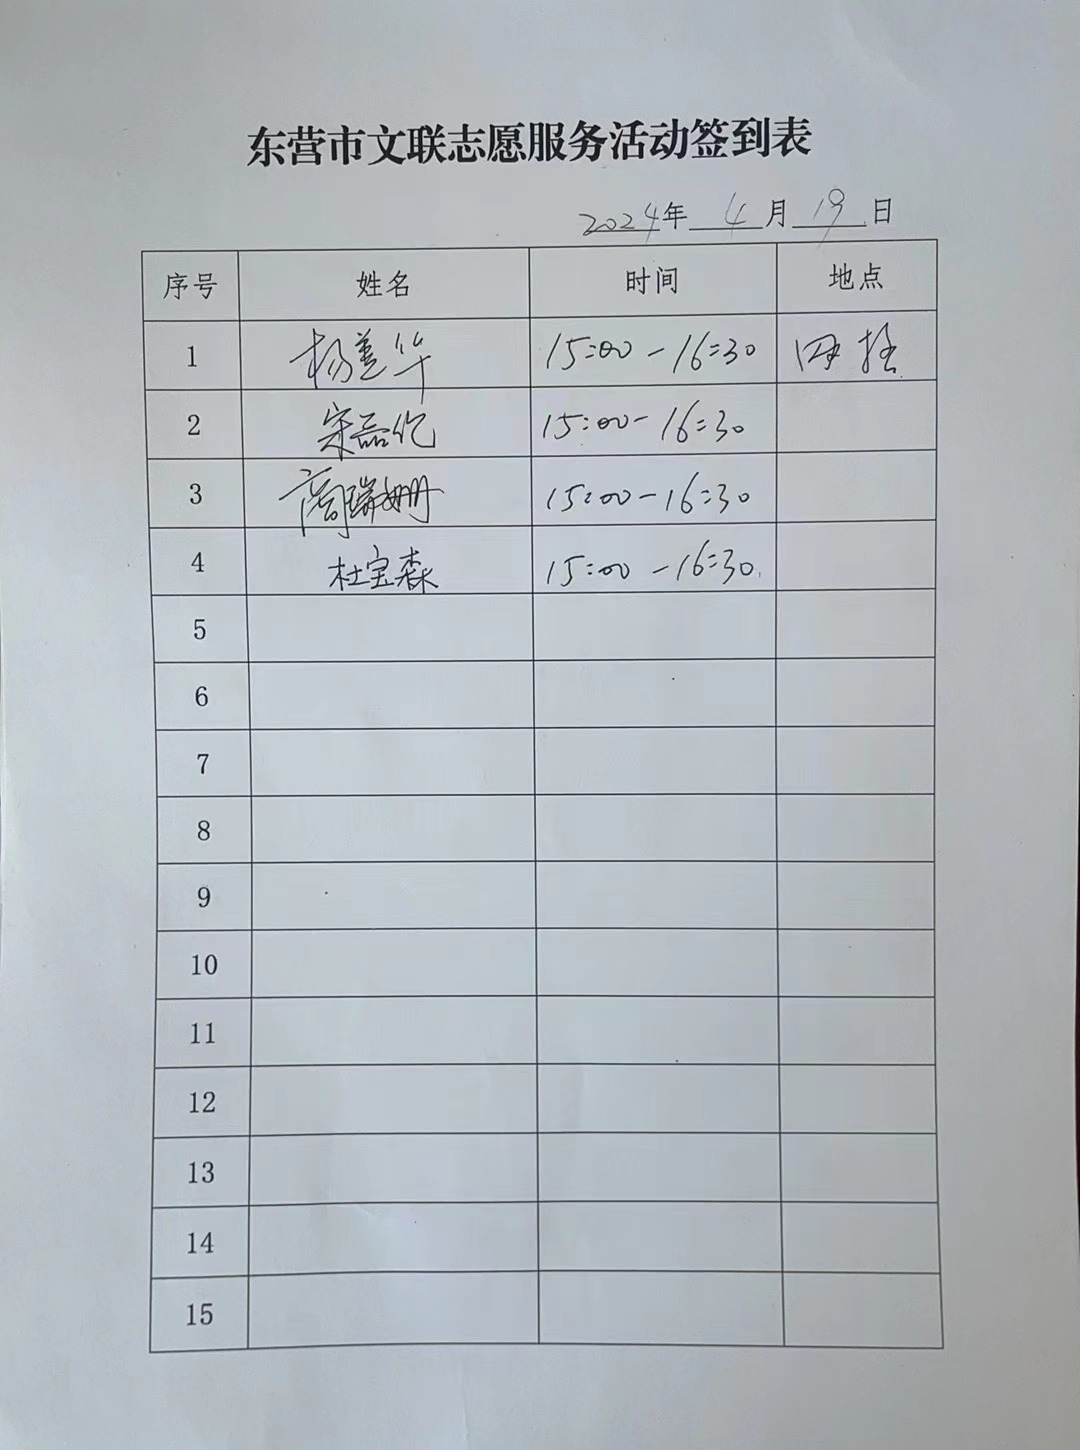 东营市文联志愿服务活动签到表
2024年 4 月 19 日
序号 姓名 时间 地点
1 杨善华 15:00-16:30
2 宋磊亿 15:00-16:30
3 商瑞姗 15:00-16:30
4 杜宝森 15:00-16:30
5
6
7
8
9
10
11
12
13
14
15